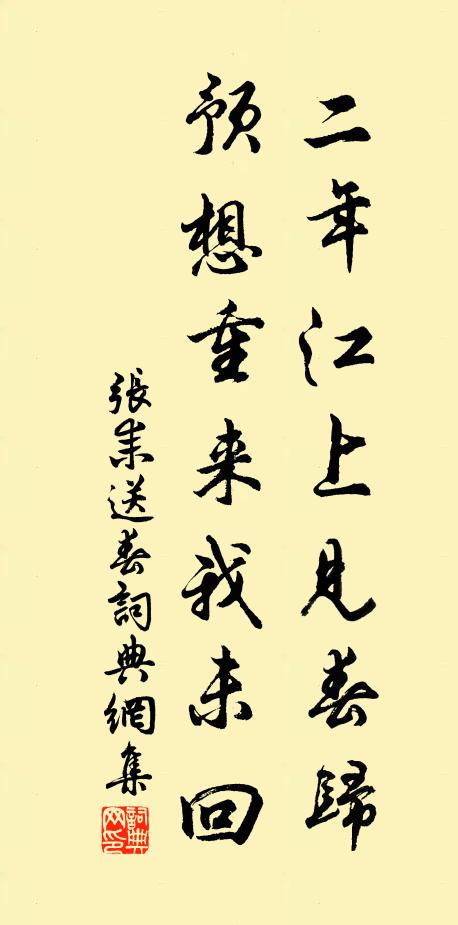 二年江上見春歸
預想重来我未回
張耒送春詞典網集
詞典網印